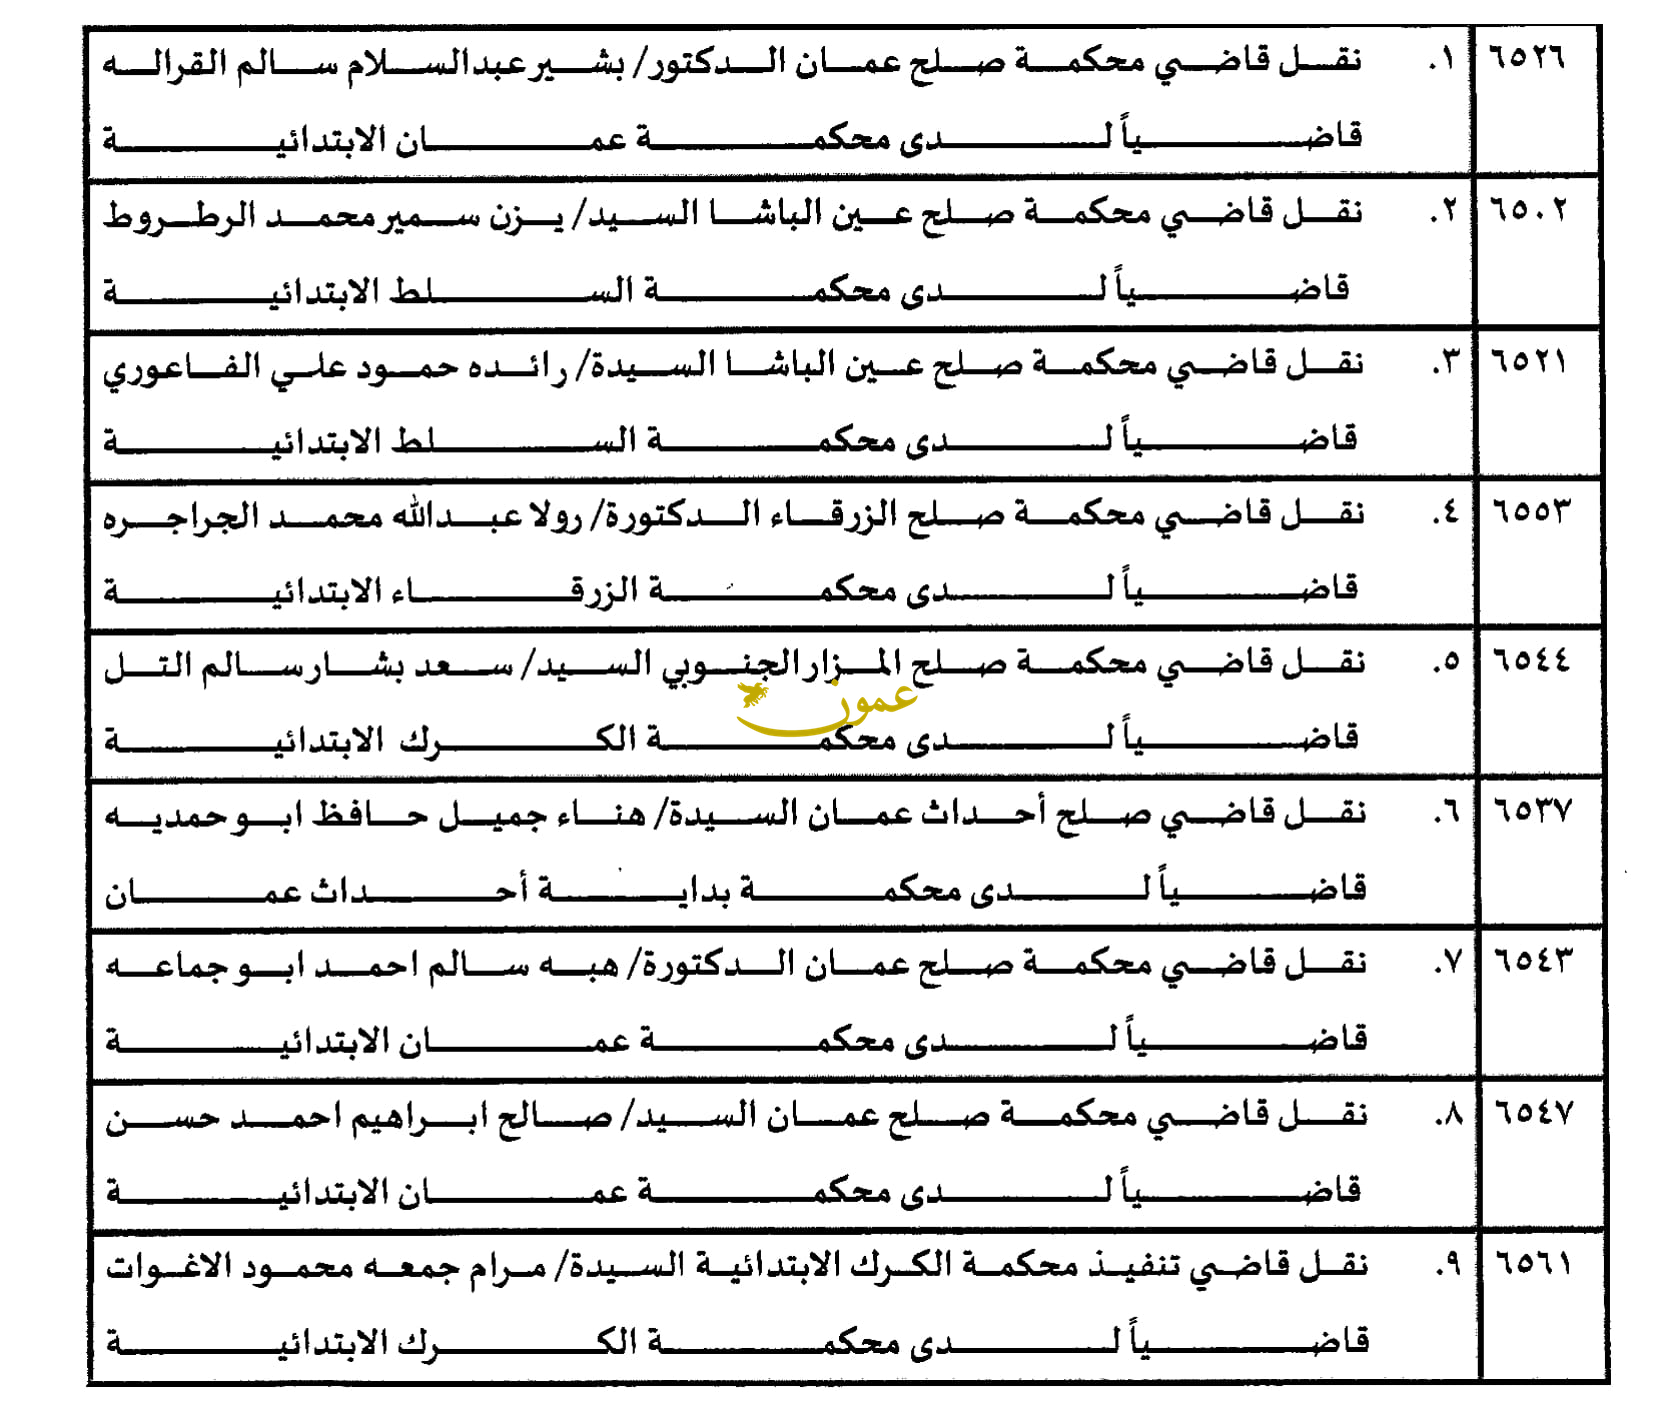 ٦٥٢٦ ١. نقل قاضي محكمة صلح عمان الدكتور/ بشير عبدالسلام سالم القراله
قاضياً لدى محكمة عمان الابتدائية
٦٥٠٢ ٢. نقل قاضي محكمة صلح عين الباشا السيد/ يزن سمير محمد الرطروط
قاضياً لدى محكمة السلط الابتدائية
٦٥٢١ ٣. نقل قاضي محكمة صلح عين الباشا السيدة/ رائده حمود علي الفاعوري
قاضياً لدى محكمة السلط الابتدائية
٦٥٥٣ ٤. نقل قاضي محكمة صلح الزرقاء الدكتورة/ رولا عبدالله محمد الجراجره
قاضياً لدى محكمة الزرقاء الابتدائية
٦٥٤٤ ٥. نقل قاضي محكمة صلح المزار الجنوبي السيد/ سعد بشار سالم التل
عمون
قاضياً لدى محكمة الكرك الابتدائية
٦٥٣٧ ٦. نقل قاضي صلح أحداث عمان السيدة/ هناء جميل حافظ ابو حمديه
قاضياً لدى محكمة بداية أحداث عمان
٦٥٤٣ ٧. نقل قاضي محكمة صلح عمان الدكتورة/ هبه سالم احمد ابو جماعه
قاضياً لدى محكمة عمان الابتدائية
٦٥٤٧ ٨. نقل قاضي محكمة صلح عمان السيد/ صالح ابراهيم احمد حسن
قاضياً لدى محكمة عمان الابتدائية
٦٥٦١ ٩. نقل قاضي تنفيذ محكمة الكرك الابتدائية السيدة/ مرام جمعه محمود الاغوات
قاضياً لدى محكمة الكرك الابتدائية